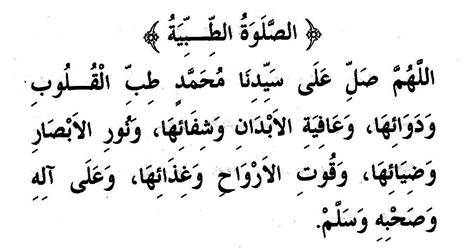 ﴿ الصَّلَوَةُ الطِّبِّيَةُ ﴾
اللَّهُمَّ صَلِّ عَلَى سَيِّدِنَا مُحَمَّدٍ طِبِّ الْقُلُوبِ
وَدَوَائِهَا، وَعَافِيَةِ الاَبْدَانِ وَشِفَائِهَا، وَنُورِ الاَبْصَارِ
وَضِيَائِهَا، وَقُوتِ الاَرْوَاحِ وَغِذَائِهَا، وَعَلَى آلِهِ
وَصَحْبِهِ وَسَلِّمْ.